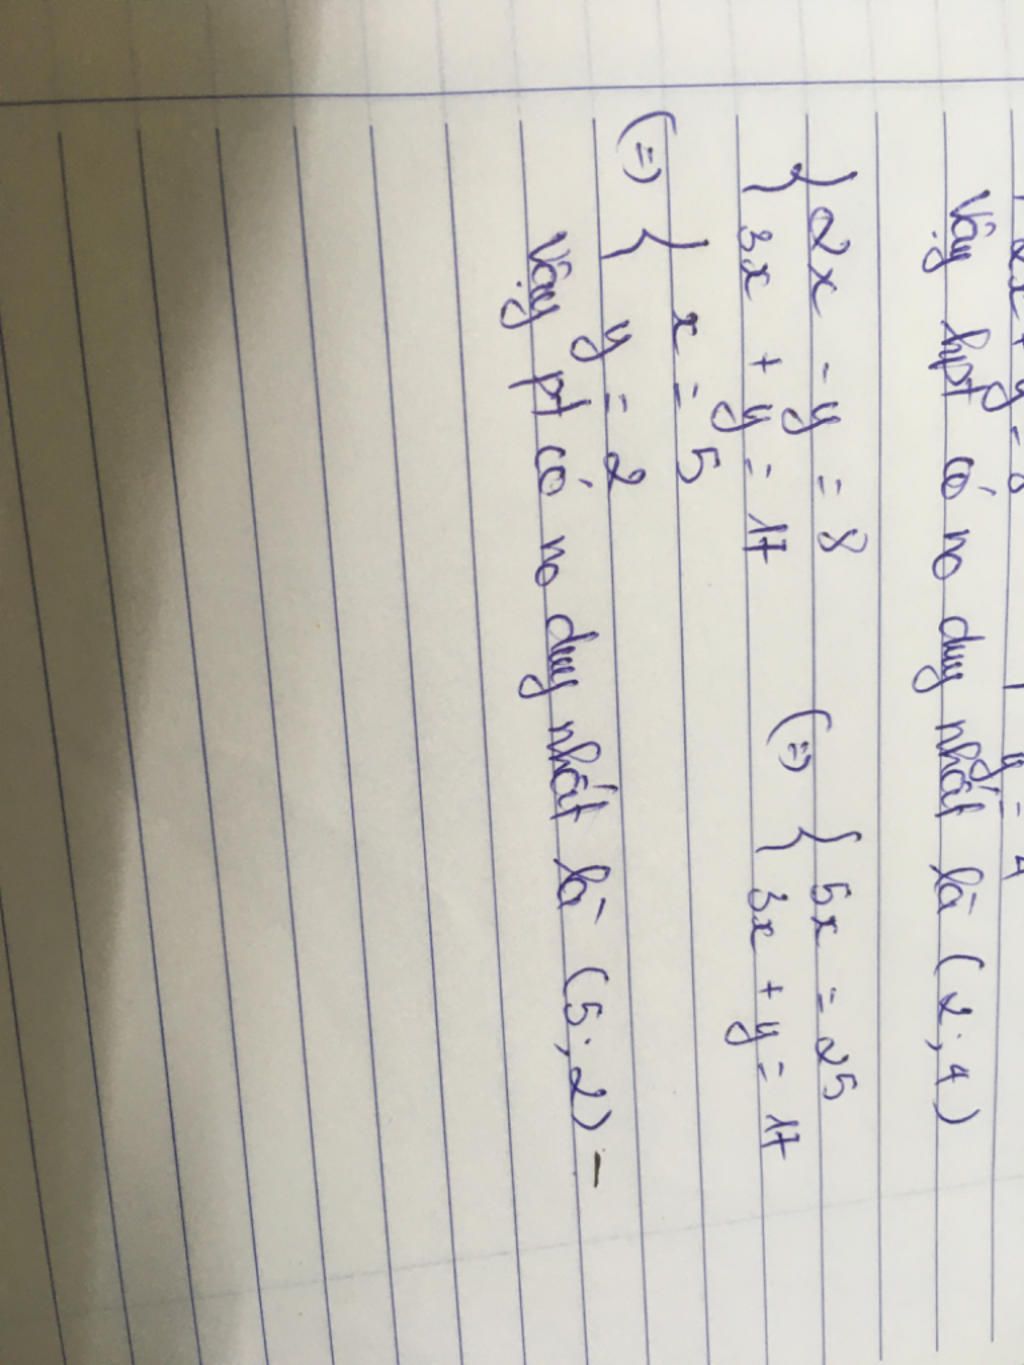 2x + y = 8 y = 4
Vậy hpt có no duy nhất là (2; 4)
{ 2x - y = 8 (=) { 5x = 25
3x + y = 17 3x + y = 17
(=) { x = 5
y = 2
Vậy pt có no duy nhất là (5; 2) -